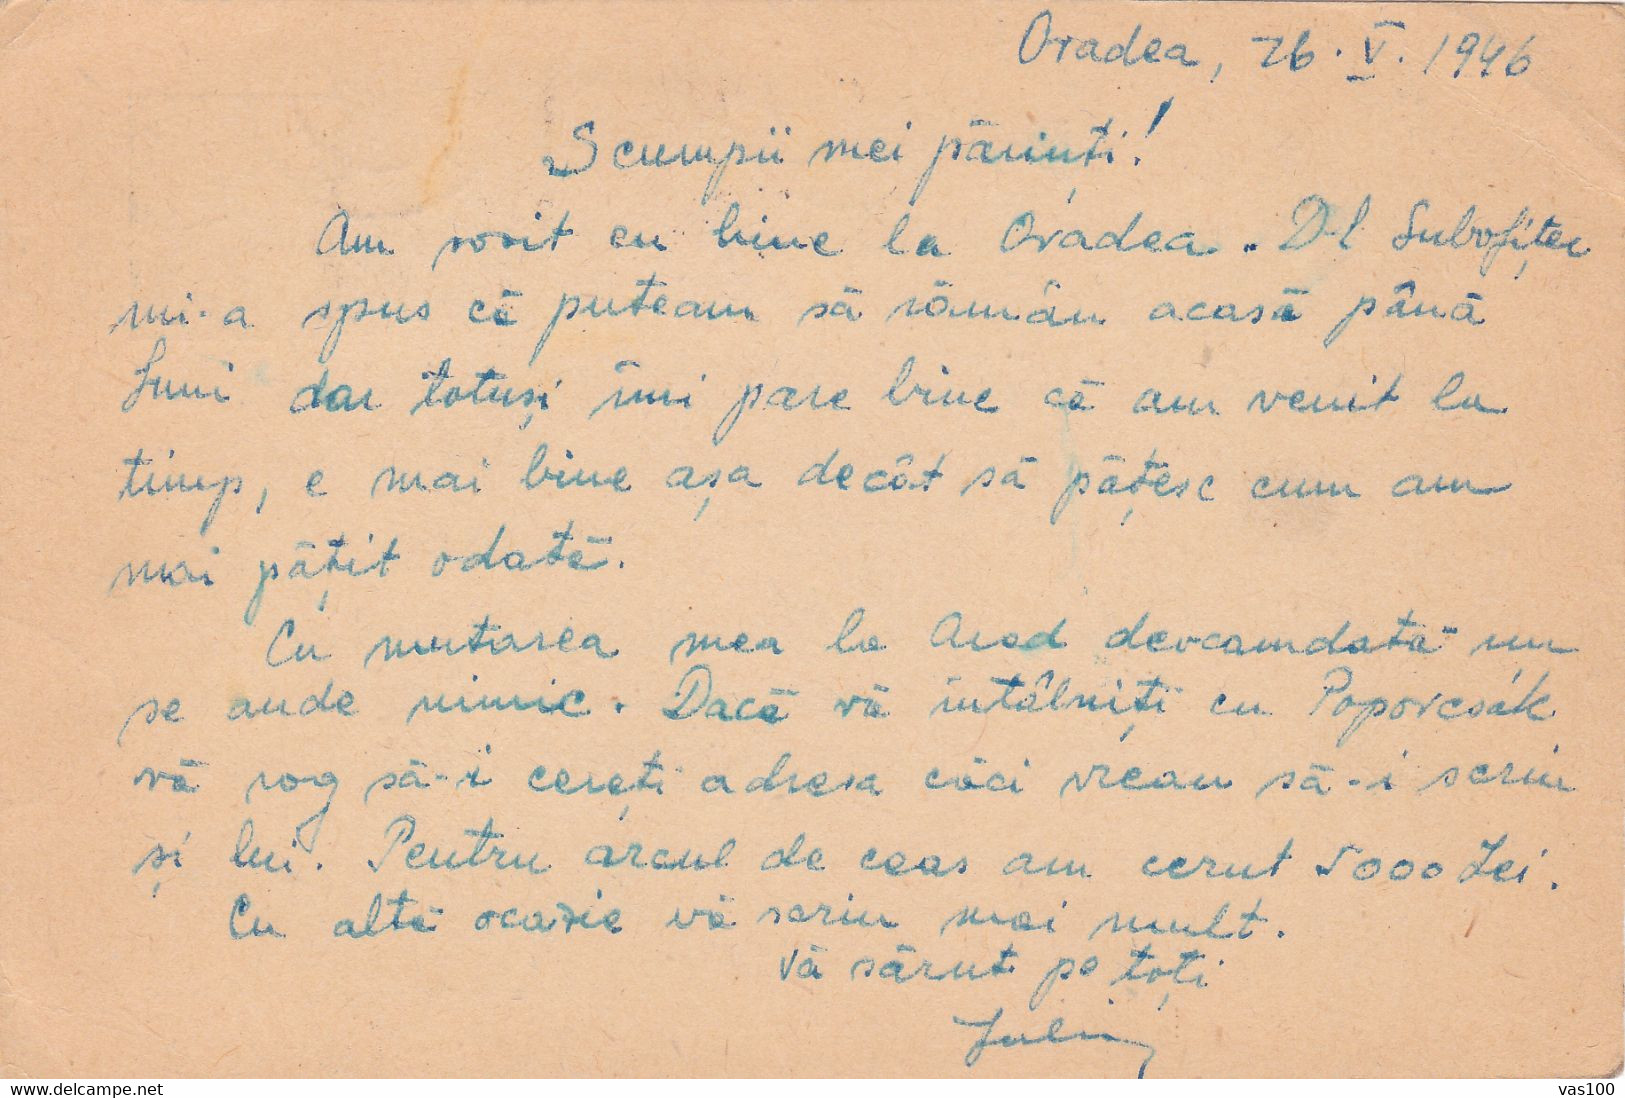 Oradea, 26.V.1946
Scumpii mei părinți!
Am sosit cu bine la Oradea. Dl Subofițer
mi-a spus că puteam să rămân acasă până
Luni dar totuși îmi pare bine că am venit la
timp, e mai bine așa decât să pățesc cum am
mai pățit odată.
Cu mutarea mea la Arad deocamdată nu
se aude nimic. Dacă vă întâlniți cu Poporcsák
vă rog să-i cereți adresa căci vreau să-i scriu
și lui. Pentru arcul de ceas am cerut 5000 Lei.
Cu altă ocazie vă scriu mai mult.
Vă sărut pe toți
Iuliu
delcampe.net
vas100